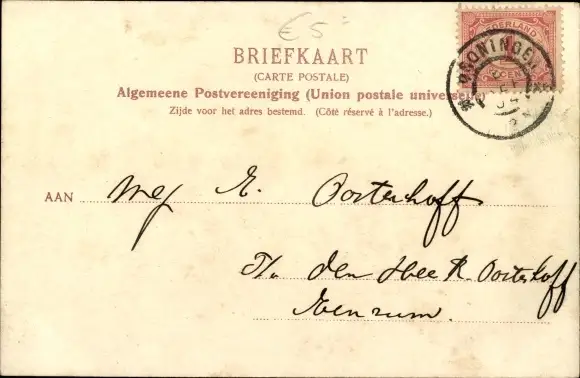 €5-
BRIEFKAART
(CARTE POSTALE)
Algemeene Postvereeniging (Union postale universelle)
Zijde voor het adres bestemd. (Côté réservé à l'adresse.)
NEDERLAND
CENT
GRONINGEN
AAN Mej E. Oosterhoff
p/a den Heer R. Oosterhoff
Eenrum.